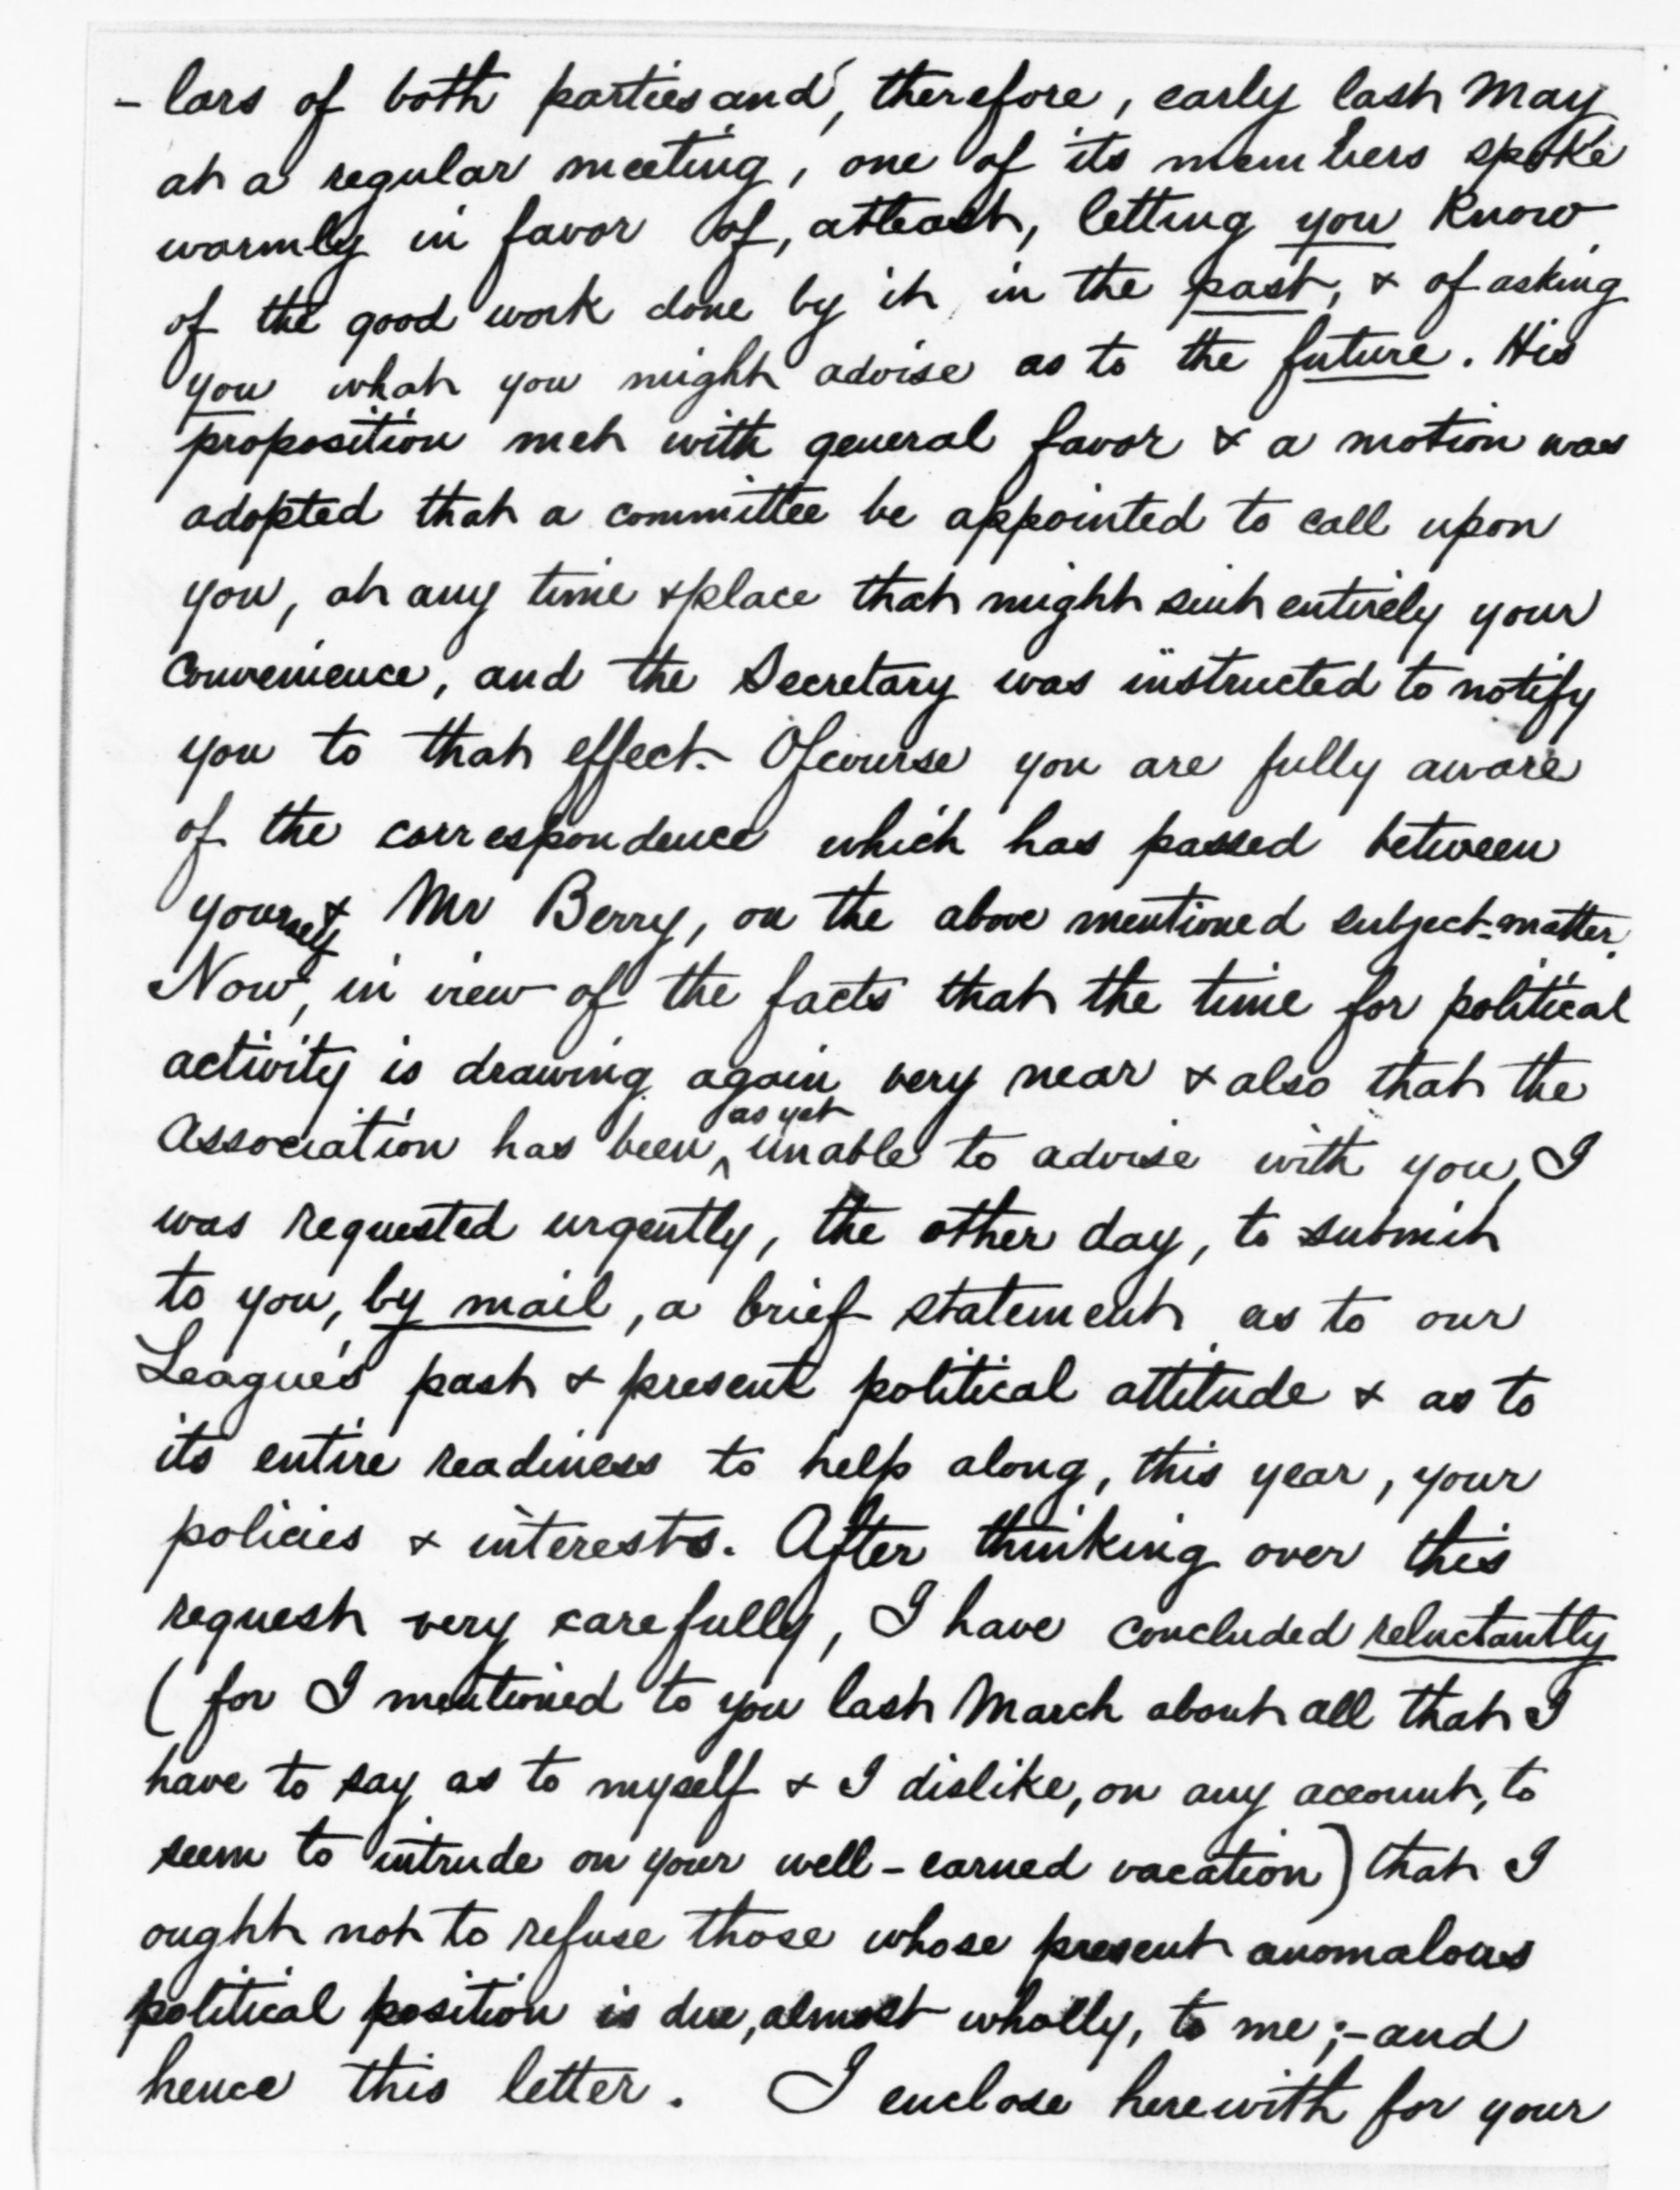 - lars of both parties and, therefore, early last May
at a regular meeting, one of its members spoke
warmly in favor of, atleast, letting you know
of the good work done by it in the past, & of asking
you what you might advise as to the future. His
proposition met with general favor & a motion was
adopted that a committee be appointed to call upon
you, at any time & place that might suit entirely your
convenience, and the Secretary was instructed to notify
you to that effect. Ofcourse you are fully aware
of the correspondence which has passed between
yourself & Mr Berry, on the above mentioned subject-matter.
Now, in view of the facts that the time for political
activity is drawing again very near & also that the
Association has been as yet unable to advise with you, I
was requested urgently, the other day, to submit
to you, by mail, a brief statement as to our
League's past & present political attitude & as to
its entire readiness to help along, this year, your
policies & interests. After thinking over this
request very carefully, I have concluded reluctantly
(for I mentioned to you last March about all that I
have to say as to myself & I dislike, on any account, to
seem to intrude on your well-earned vacation) that I
ought not to refuse those whose present anomalous
political position is due, almost wholly, to me;- and
hence this letter. I enclose herewith for your